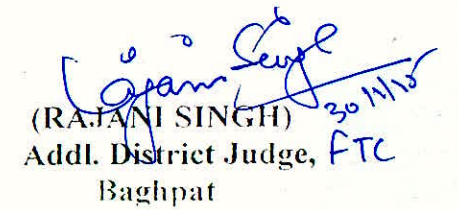 Rajani Singh
30/11/15
(RAJANI SINGH)
Addl. District Judge, FTC
Baghpat